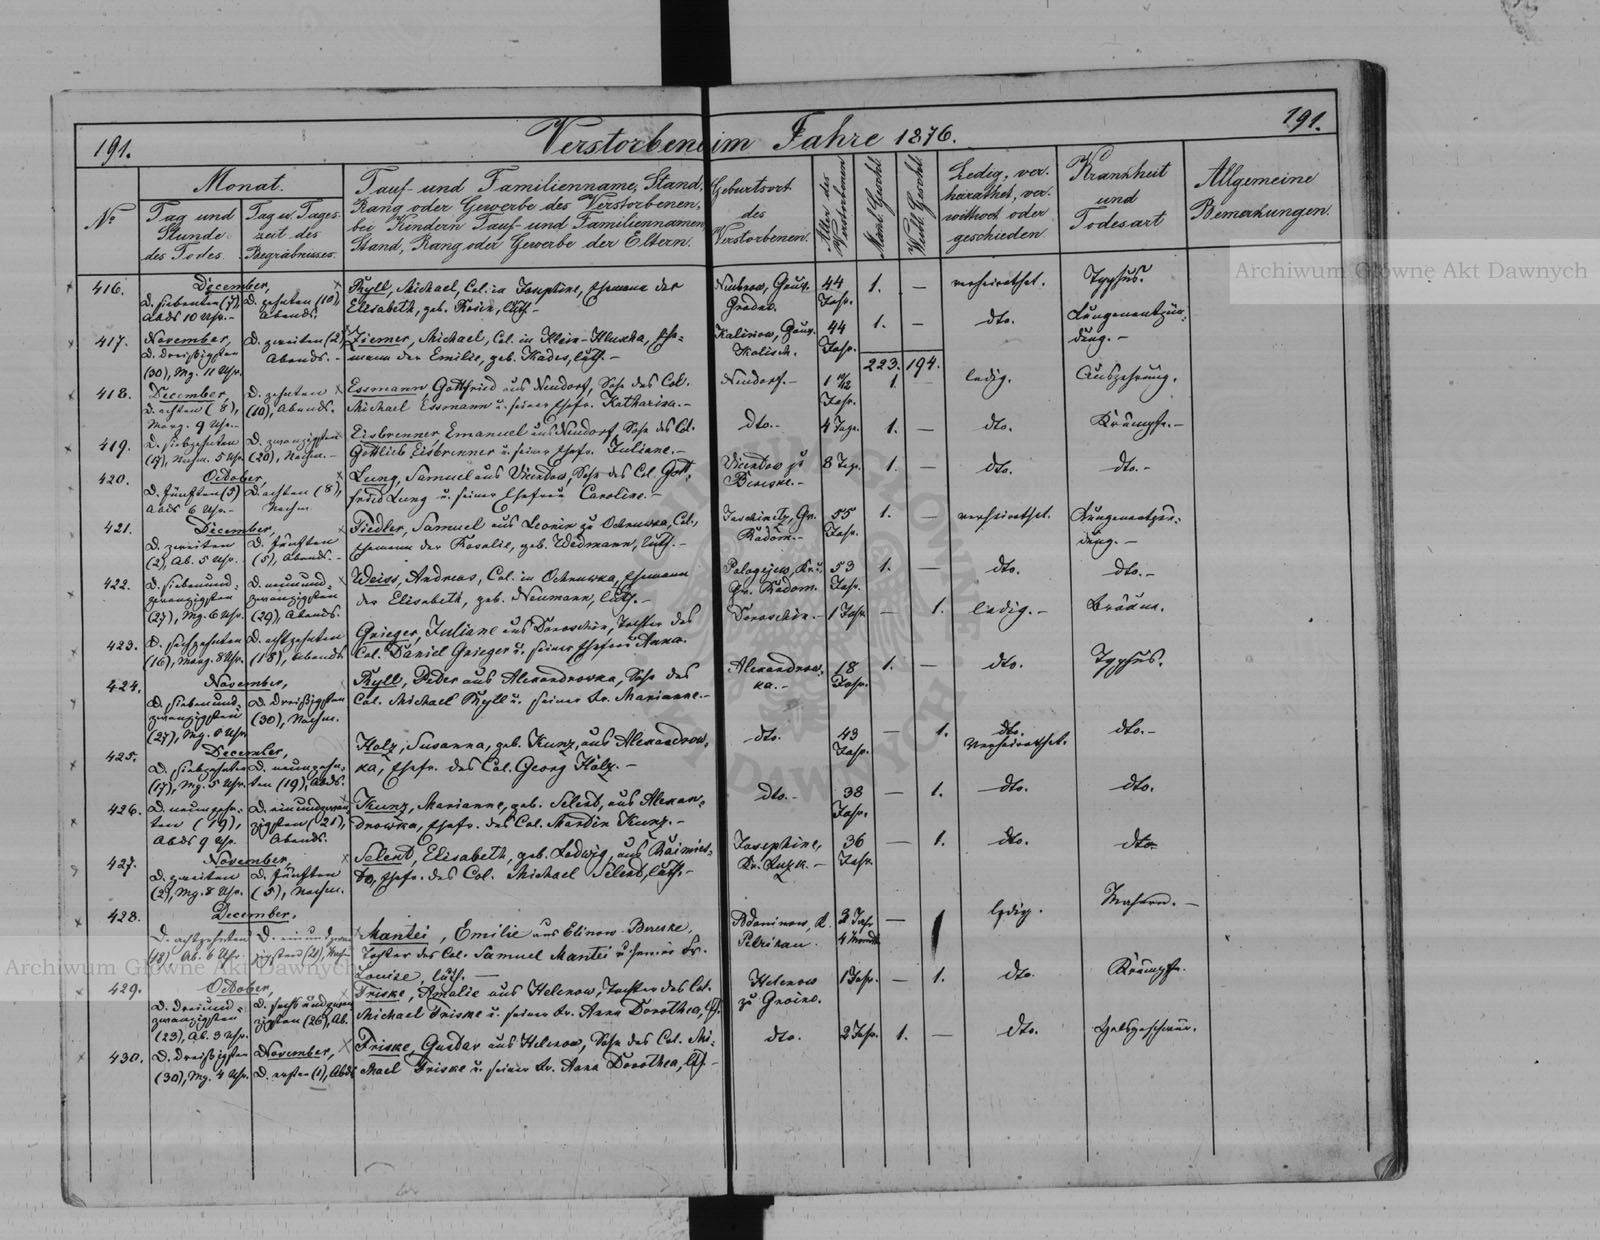 191.
Verstorben im Jahre 1876.
191.
No
Monat.
Tag und Stunde des Todes.
Tag u. Tageszeit des Begräbnisses.
Tauf- und Familienname, Stand,
Rang oder Gewerbe des Verstorbenen,
bei Kindern Tauf- und Familiennamen
Stand, Rang oder Gewerbe der Eltern.
Geburtsort des Verstorbenen.
Alter des Verstorbenen
Männl. Geschl.
Weibl. Geschl.
Ledig, verheirathet, verwittwet oder geschieden
Krankheit und Todesart
Allgemeine Bemerkungen.
416. December,
D. siebenten (7), Abds 10 Uhr.-
D. zehnten (10), Abends.
Ryll, Michael, Col. in Josephine, Ehemann der
Elisabeth, geb. Rosin, luth.-
Gouv. Grodno. 44 Jahr. 1. — verheirathet. Typhus.
417. November,
D. dreißigsten (30), Mg. 11 Uhr.
D. zweiten (2) Abends.-
Ziemer, Michael, Col. in Klein-Hluxka, Ehe-
mann der Emilie, geb. Kades, luth.-
Kalinow, Gouv. Kalisch. 44 Jahr. 1. — dto. Lungenentzün-
dung.-
223. 194.
418. December,
D. achten (8), Morg. 9 Uhr.-
D. zehnten (10), Abends.
Essmann Gottfried aus Neudorf, Sohn des Col.
Michael Essmann u. seiner Ehefr. Katharina.-
Neudorf.- Jahr. 1 — ledig. Auszehrung.
419. D. siebzehnten (17), Nachm. 5 Uhr
D. zwanzigsten (20), Nachm.-
Eisbrenner Emanuel aus Neudorf, Sohn des Col.
Gottlieb Eisbrenner u. seiner Ehefr. Juliane.-
dto.- 4 Tage. 1. — dto. Krämpfe.-
420. October,
D. fünften (5) Abds 6 Uhr.-
D. achten (8), Nachm.
Lung, Samuel aus Vicentow, Sohn des Col. Gott-
fried Lung u. seiner Ehefrau Caroline.-
Vicentow zu Bereske.- 8 Tag. 1. — dto. dto.-
421. December,
D. zweiten (2), Ab. 5 Uhr.
D. fünften (5), Abends.-
Fiedler, Samuel aus Leonin zu Ochnuwka, Col.,
Ehemann der Rosalie, geb. Wedmann, luth.-
Gv. Radom.- 55 Jahr. 1. — verheirathet. Lungenentzün-
dung.-
422. D. siebenund-
zwanzigsten (27), Mg. 6 Uhr.
D. neunund-
zwanzigsten (29), Abends.
Weiss, Andreas, Col. in Ochnuwka, Ehemann
der Elisabeth, geb. Neumann, luth.-
Gv. Radom. 53 Jahr. 1. — dto. dto.-
423. D. sechzehnten (16), Morg. 8 Uhr.
D. achtzehnten (18), Abends
Grieger, Juliane aus Doroschin, Tochter des
Col. Daniel Grieger u. seiner Ehefrau Anna.
Doroschin.- 1 Jahr. — 1. ledig.- Bräune.
424. November,
D. siebenund-
zwanzigsten (27), Mg. 6 Uhr
D. dreißigsten (30), Nachm.
Ryll, Peter aus Alexandrowka, Sohn des
Col. Michael Ryll u. seiner Fr. Marianne.-
Alexandrow-
ka.- 18 Jahr. 1. — dto. Typhus.
425. December,
D. siebzehnten (17), Mg. 5 Uhr.
D. neunzehn-
ten (19), Abds.
Holz, Susanna, geb. Kunz, aus Alexandrow-
ka, Ehefr. des Col. Georg Holz.-
dto. 43 Jahr. — 1. dto. Verheirathet. dto.-
426. D. neunzehn-
ten (19), Abds 9 Uhr.
D. einundzwan-
zigsten (21), Abends.
Kunz, Marianne, geb. Selent, aus Alexan-
drowka, Ehefr. des Col. Martin Kunz.-
dto.- 38 Jahr. — 1. dto. dto.
427. November,
D. zweiten (2), Mg. 8 Uhr.
D. fünften (5), Nachm.
Selent, Elisabeth, geb. Ladwig, aus
Ehefr. des Col. Michael Selent, luth.-
Josephine, Kr. Luzk.- 36 Jahr. — 1. dto. dto.
428. December,
D. achtzehnten (18) Ab. 6 Uhr
D. einundzwan-
zigsten (21), Nachm
Mantei, Emilie aus Elinow-Bereske,
Tochter des Col. Samuel Mantei u. seiner Fr.
Louise, luth.—
Petrikau. 4 Monate — 1 ledig. Masern.-
429. October,
D. dreiund-
zwanzigsten (23), Ab. 3 Uhr.
D. sechsundzwan-
zigsten (26), Ab.
Friske, Amalie aus Helenow, Tochter des Col.
Michael Friske u. seiner Fr. Anna Dorothea, lth.
Helenow 1 Jahr. — 1. dto. Krämpfe.
430. D. dreißigsten (30), Mg. 4 Uhr.
November,
D. ersten (1), Abds
Friske, Gustav aus Helenow, Sohn des Col. Mi-
chael Friske u. seiner Fr. Anna Dorothea, lth.-
dto. 2 Jahr. 1. — dto. Halsgeschwür.
Archiwum Główne Akt Dawnych
Archiwum Główne Akt Dawnych